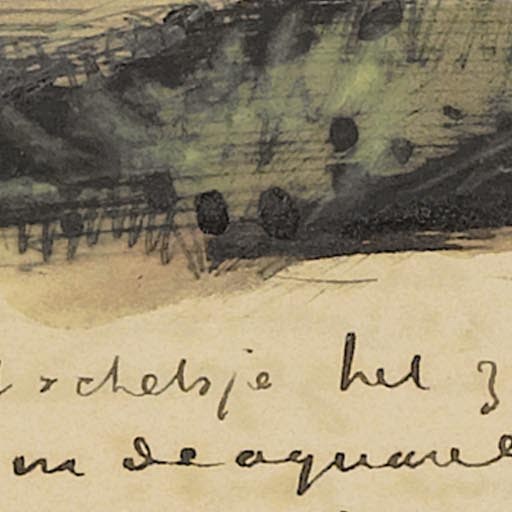 schetsje het z
in de aquarel